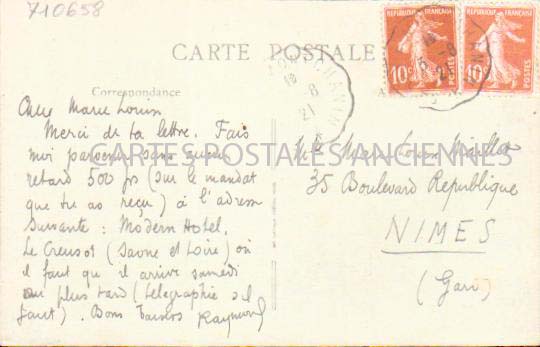 710658
CARTE POSTALE
Correspondance
RÉPUBLIQUE FRANÇAISE
10c
POSTES
RÉPUBLIQUE FRANÇAISE
10c
POSTES
8
21
CARTES POSTALES ANCIENNES
Chère Marie Louise
Merci de ta lettre. Fais
moi parvenir sans aucun
retard 500 frs (sur le mandat
que tu as reçu) à l'adresse
suivante : Modern Hotel.
Le Creusot (Saone et Loire) où
il faut qu'il arrive samedi
au plus tard (télégraphie s'il
faut). Bons baisers Raymond
Mlle Marie Louise
35 Boulevard République
NIMES
(Gard)